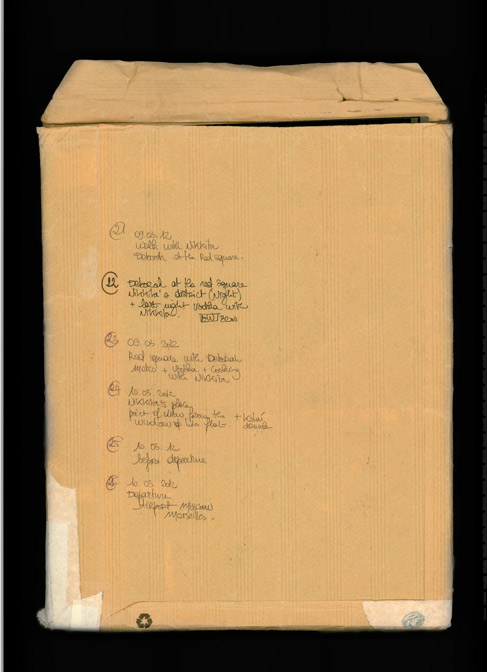 21 09.03.12
Walk with Nikita
Deborah at the Red Square.
22 Deborah at the red Square
Nikita's district (Night)
+ last night vodka with
Nikita.
23 09.03.2012
Red square with Deborah
metro + Vodka + Cooking
with Nikita
24 10.03.2012
Nikita's place
point of view from the +
window of his flat
25 10.03.12
before departure
26 10.03.2012
Departure
Airport Moscow
Marseilles.